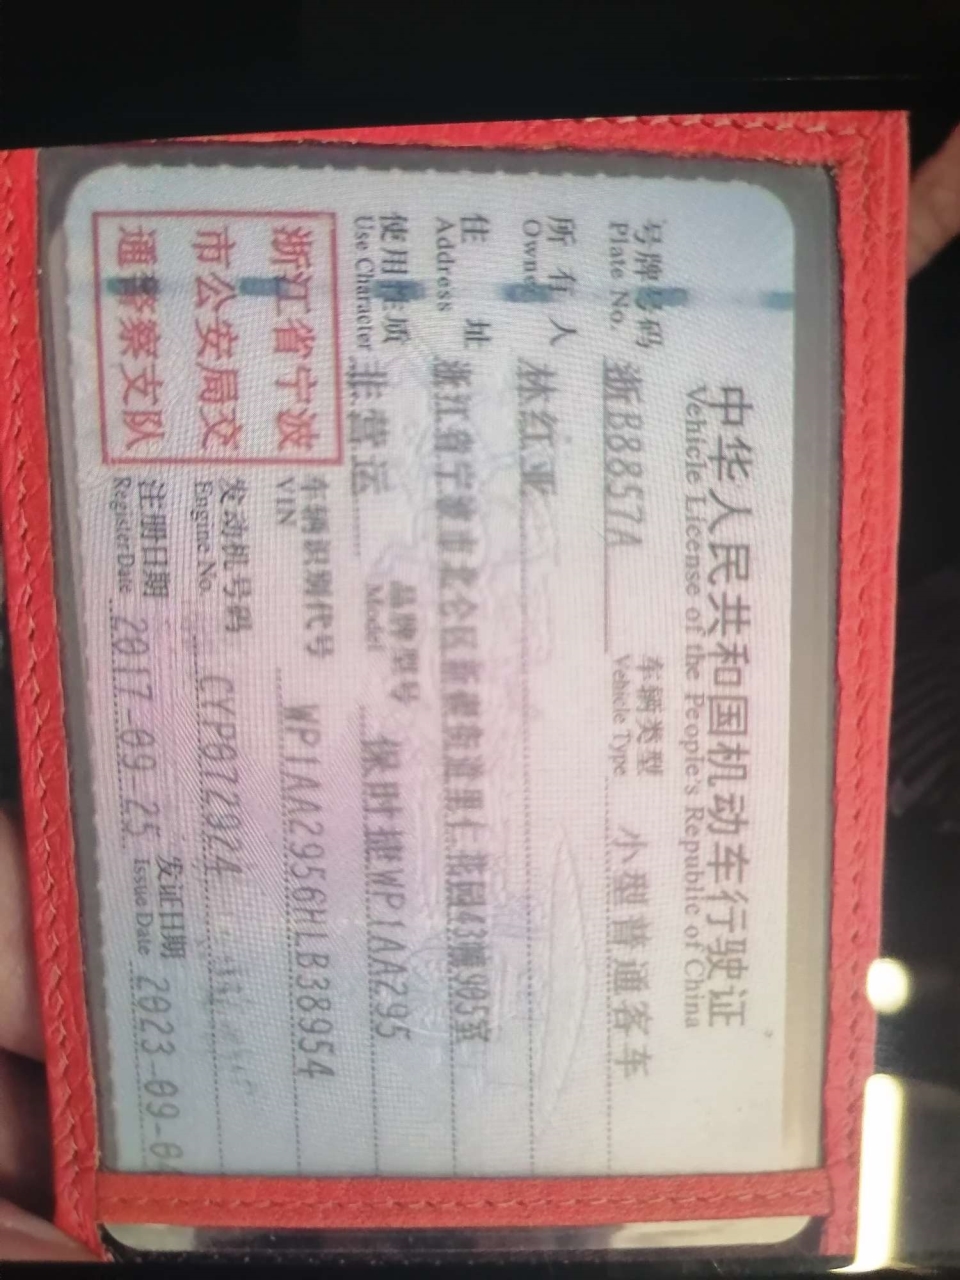 中华人民共和国机动车行驶证
Vehicle License of the People's Republic of China
号牌号码 浙B8857A 车辆类型 小型普通客车
Plate No. Vehicle Type
所有人 林红亚
Owner
住址 浙江省宁波市北仑区新碶街道里仁花园43幢905室
Address
使用性质 非营运 品牌型号 保时捷WP1AA295
Use Character Model
浙江省宁波
市公安局交
通警察支队
车辆识别代号 WP1AA2956HLB38954
VIN
发动机号码 CYP072924
Engine No.
注册日期 2017-09-25 发证日期 2023-09-0
Register Date Issue Date